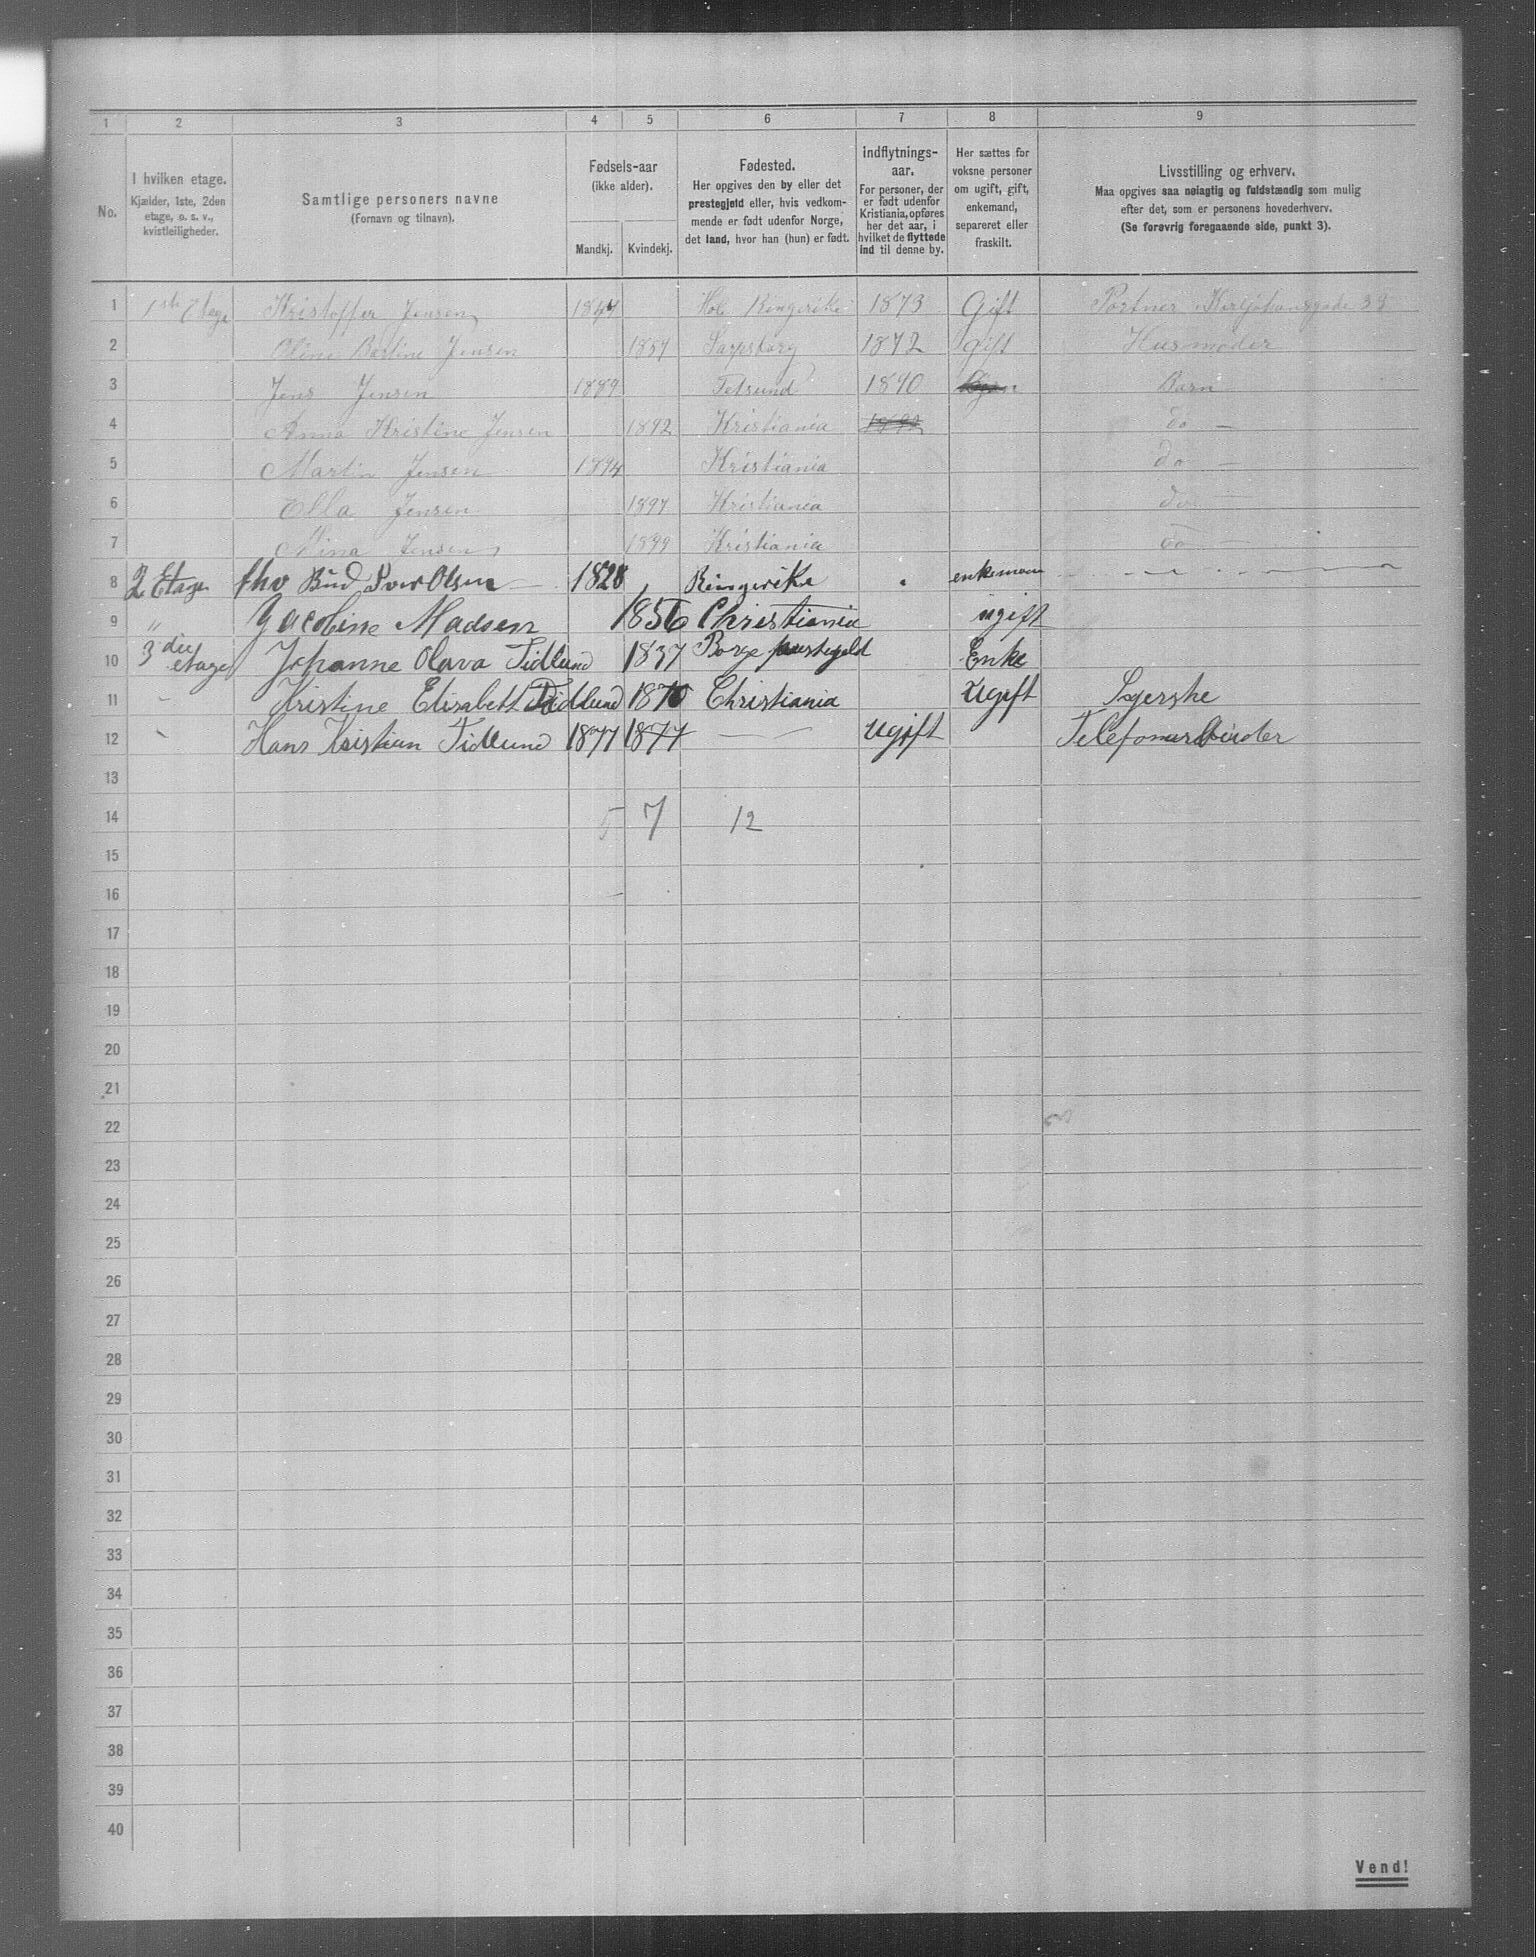 1 2 3 4 5 6 7 8 9
No.
I hvilken etage.
Kjælder, 1ste, 2den
etage, o. s. v.,
kvistleiligheder.
Samtlige personers navne
(Fornavn og tilnavn).
Fødsels-aar
(ikke alder).
Mandkj. Kvindekj.
Fødested.
Her opgives den by eller det
prestegjeld eller, hvis vedkom-
mende er født udenfor Norge,
det land, hvor han (hun) er født.
indflytnings-
aar.
For personer, der
er født udenfor
Kristiania, opføres
her det aar, i
hvilket de flyttede
ind til denne by.
Her sættes for
voksne personer
om ugift, gift,
enkemand,
separeret eller
fraskilt.
Livsstilling og erhverv.
Maa opgives saa nøiagtig og fuldstændig som mulig
efter det, som er personens hovederhverv.
(Se forøvrig foregaaende side, punkt 3).
1 1ste Etage Kristoffer Jensen 1847 Hole Ringerike 1873 Gift Portner Karljohansgade 33
2 Oline Bertine Jensen 1857 Sarpsborg 1872 Gift Husmoder
3 Jens Jensen 1889 Fetsund 1890 Barn
4 Anna Kristine Jensen 1892 Kristiania 1892 do —
5 Martin Jensen 1894 Kristiania do —
6 Ella Jensen 1897 Kristiania do —
7 Mina Jensen 1899 Kristiania do —
8 2 Etage Olsen 1828 Ringerike enkeman
9 " Jacobine Madsen 1856 Christiania ugift
10 3die etage Johanne Olava Tidlund 1837 Borge prestegeld Enke
11 - Kristine Elisabeth Tidlund 1870 Christiania Ugift Syerske
12 - Hans Kristian Tidlund 1877 1877 — — ugift Telefonarbeider
13
14 5 7 12
15
16
17
18
19
20
21
22
23
24
25
26
27
28
29
30
31
32
33
34
35
36
37
38
39
40
Vend!